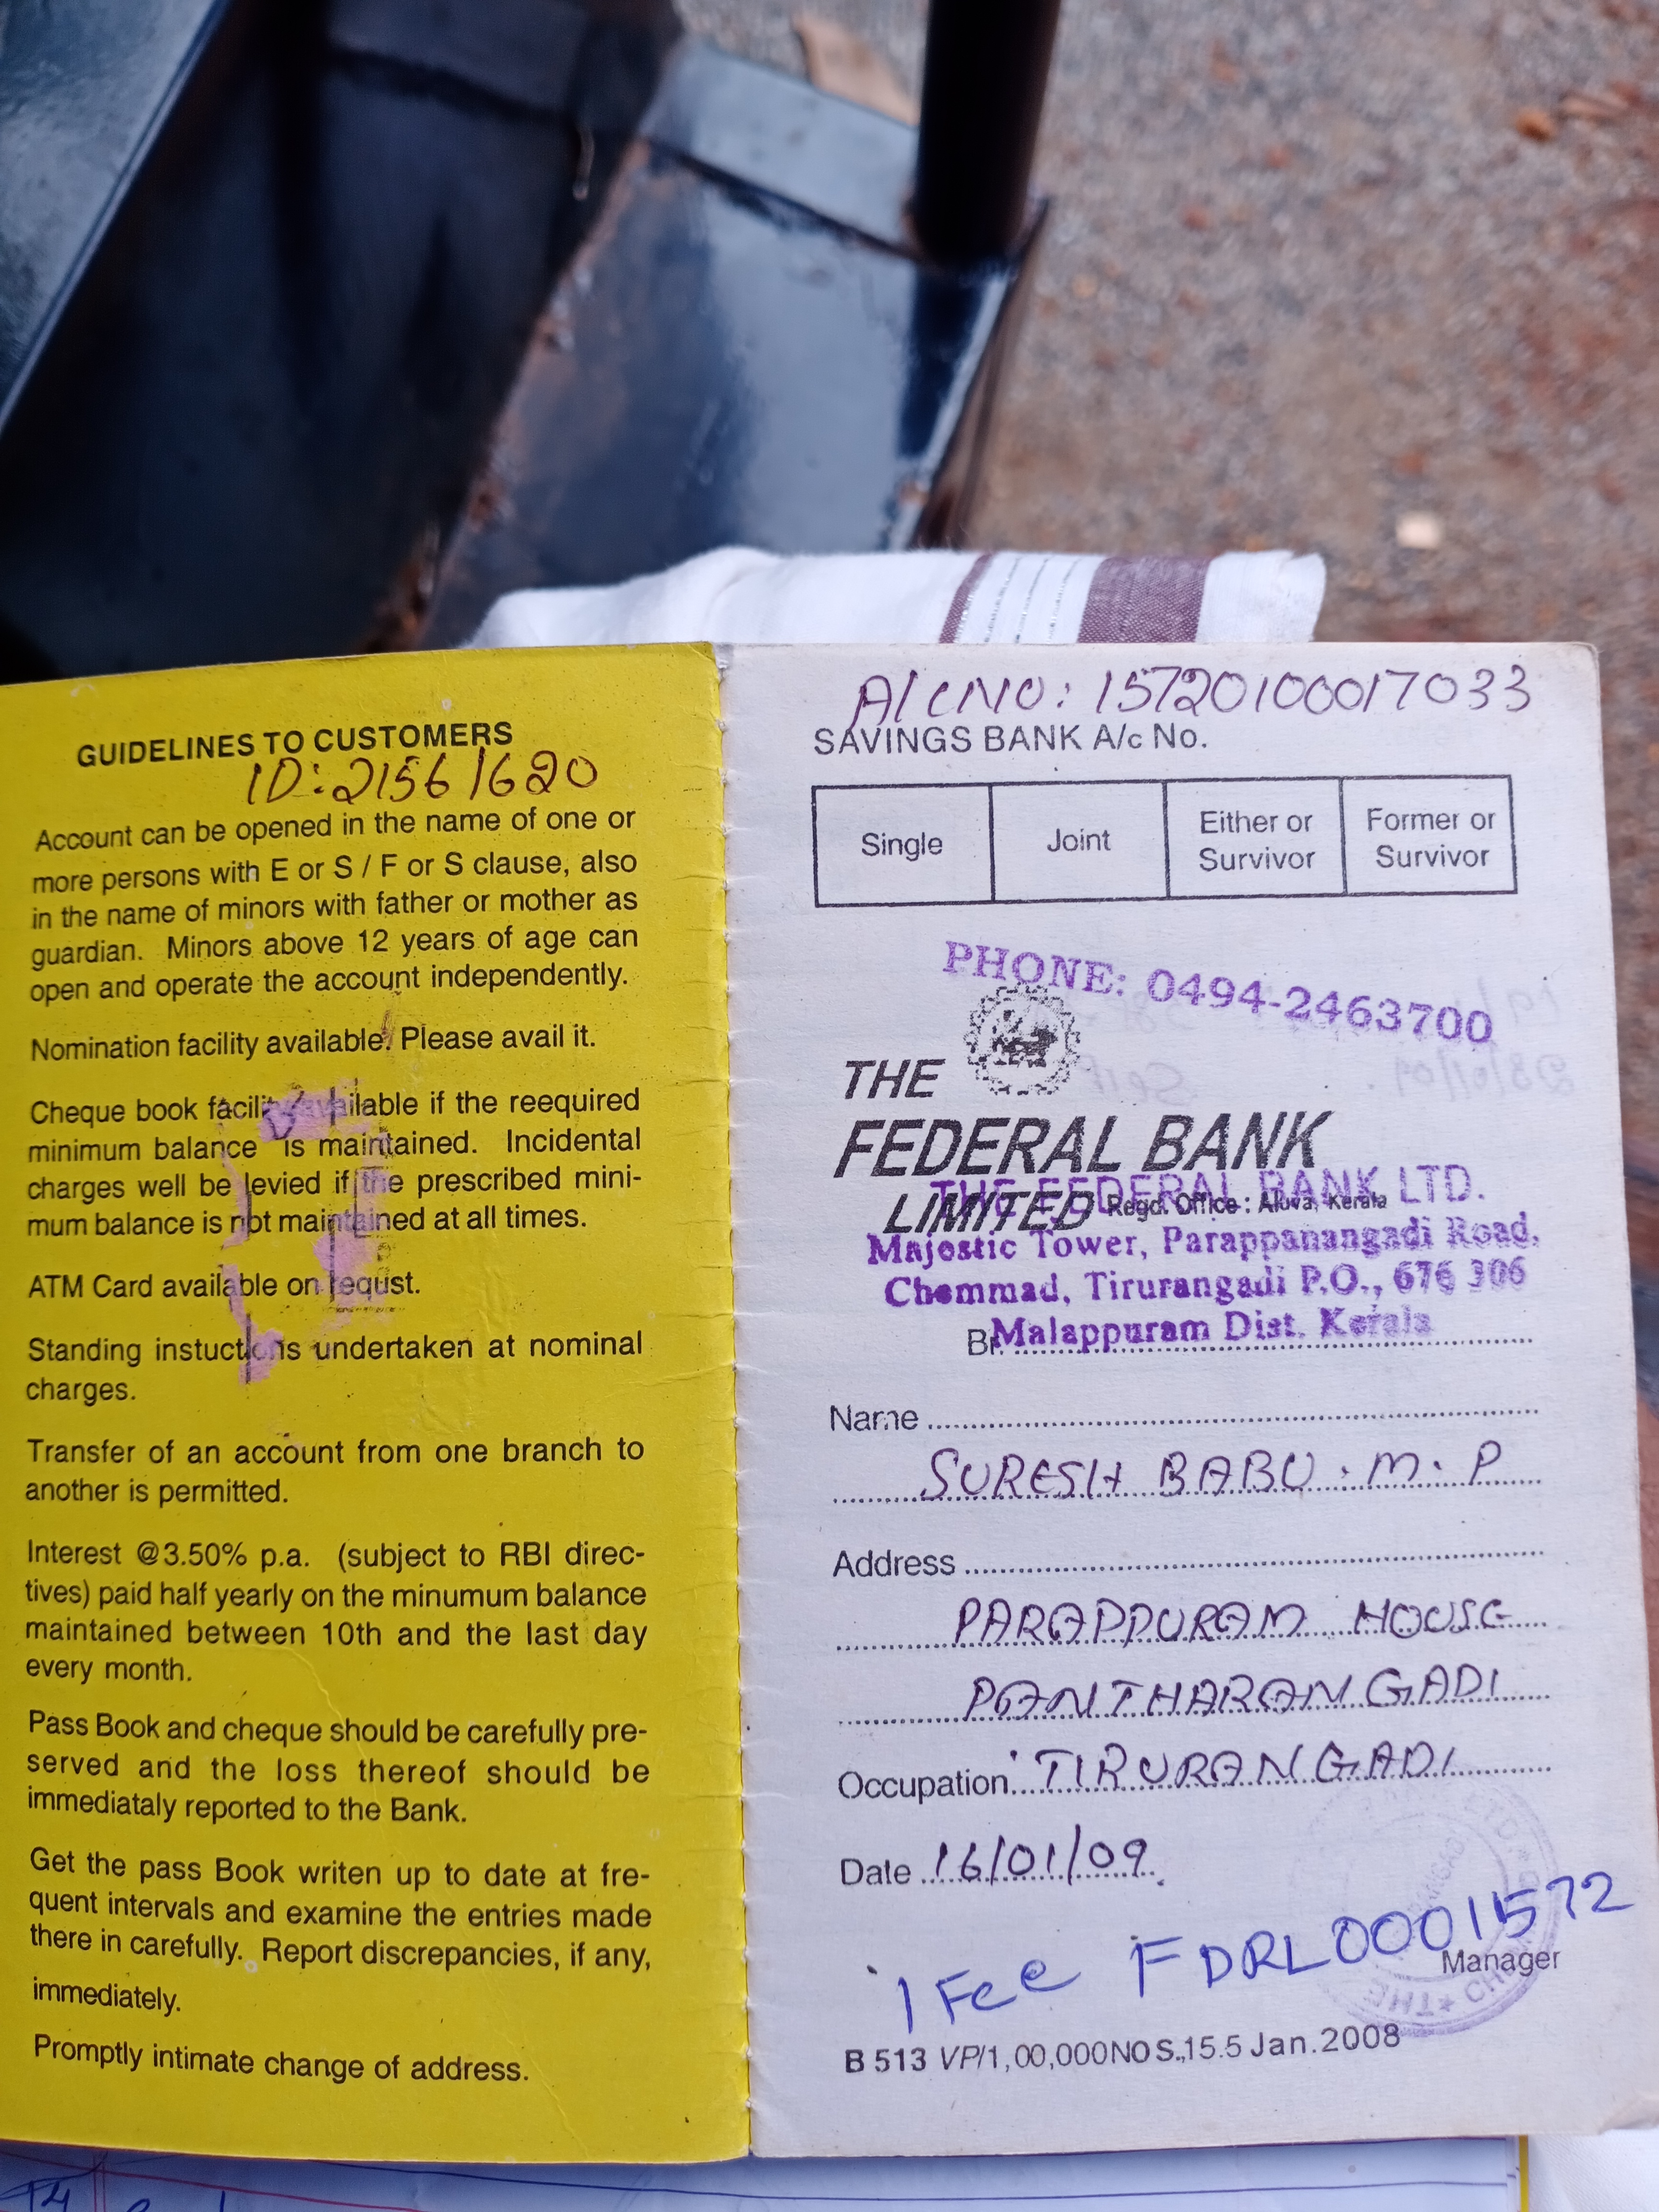 GUIDELINES TO CUSTOMERS
ID: 21561620
Account can be opened in the name of one or
more persons with E or S / F or S clause, also
in the name of minors with father or mother as
guardian. Minors above 12 years of age can
open and operate the account independently.
Nomination facility available. Please avail it.
Cheque book facility available if the reequired
minimum balance is maintained. Incidental
charges well be levied if the prescribed mini-
mum balance is not maintained at all times.
ATM Card available on requst.
Standing instuctions undertaken at nominal
charges.
Transfer of an account from one branch to
another is permitted.
Interest @3.50% p.a. (subject to RBI direc-
tives) paid half yearly on the minumum balance
maintained between 10th and the last day
every month.
Pass Book and cheque should be carefully pre-
served and the loss thereof should be
immediataly reported to the Bank.
Get the pass Book writen up to date at fre-
quent intervals and examine the entries made
there in carefully. Report discrepancies, if any,
immediately.
Promptly intimate change of address.
A/C NO: 15720100017033
SAVINGS BANK A/c No.
Single Joint Either or Survivor Former or Survivor
PHONE: 0494-2463700
THE
FEDERAL BANK
LIMITED Regd. Office : Aluva, Kerala
THE FEDERAL BANK LTD.
Majestic Tower, Parappanangadi Road,
Chemmad, Tirurangadi P.O., 676 306
Br. Malappuram Dist. Kerala
Name
SURESH BABU . M . P
Address
PARAPPURAM HOUSE
PANTHARANGADI
Occupation TIRURANGADI
Date 16/01/09
IFce FDRL0001572
Manager
B 513 VP/1,00,000NOS.,15.5 Jan.2008